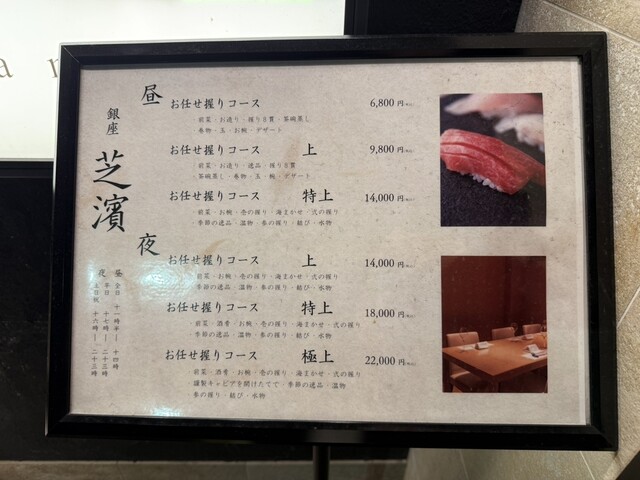 a
昼
お任せ握りコース 6,800円(税込)
前菜・お造り・握り8貫・茶碗蒸し
巻物・玉・お椀・デザート
お任せ握りコース 上 9,800円(税込)
前菜・お造り・逸品・握り8貫
茶碗蒸し・巻物・玉・椀・デザート
お任せ握りコース 特上 14,000円(税込)
前菜・お椀・壱の握り・海まかせ・弐の握り
季節の逸品・温物・参の握り・結び・水物
夜
お任せ握りコース 上 14,000円(税込)
前菜・お椀・壱の握り・海まかせ・弐の握り
季節の逸品・温物・参の握り・結び・水物
お任せ握りコース 特上 18,000円(税込)
前菜・酒肴・お椀・壱の握り・海まかせ・弐の握り
季節の逸品・温物・参の握り・結び・水物
お任せ握りコース 極上 22,000円(税込)
前菜・酒肴・お椀・壱の握り・海まかせ・弐の握り
謹製キャビアを開けたてで・季節の逸品・温物
参の握り・結び・水物
銀座
芝濱
昼 全日 十一時半〜十四時
夜 平日 十七時〜二十三時
土日祝 十六時〜二十三時